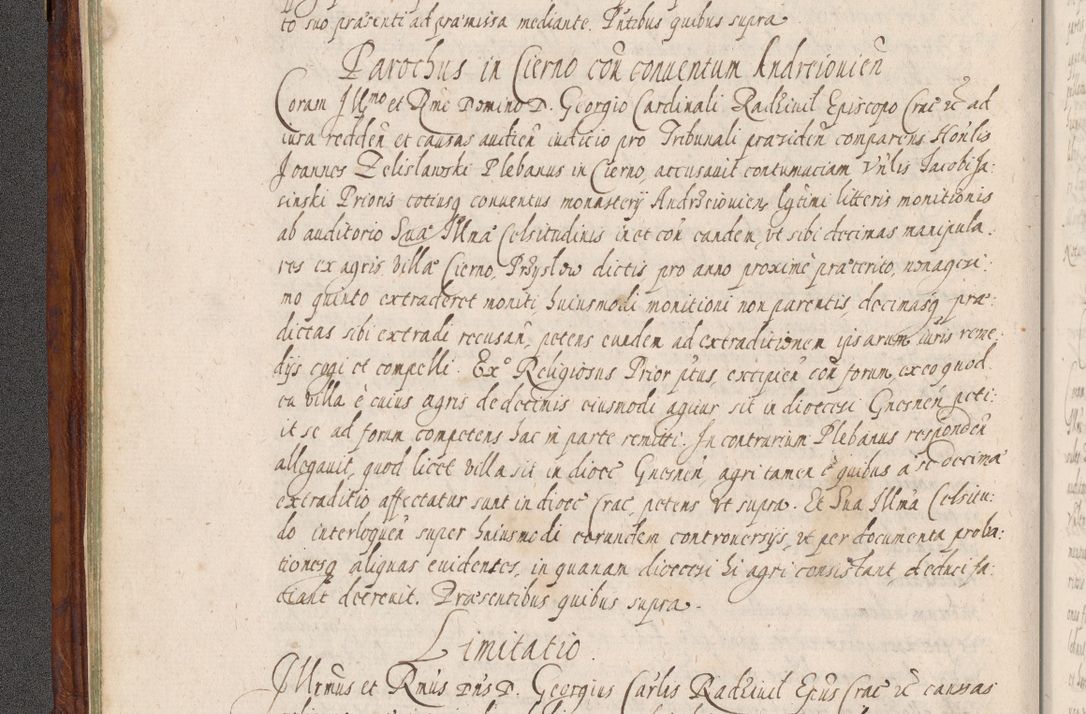 to suo præsenti ad præmissa mediante. Pñtibus quibus supra
Parochus in Cierno coñ conuentum Andreiouieñ
Coram Illmo et Rme Domino D. Georgio Cardinali Radziuil Episcopo Crac ec ad
iura redden et causas audien iudicio pro Tribunali præsideñ comparens Honlis
Joannes Zelislawski Plebanus in Cierno, accusauit contumaciam Vnlis Jacobi Ja:
sinski Prioris totiusq conuentus monastery Andrzeiouien lgtimi litteris monitionis
ab auditorio Suæ Illmæ Celsitudinis in et coñ eanden, vt sibi decimas manipula:
res ex agris villæ Cierno, Przyslow dictis pro anno proximè præterito, nonagesi:
mo quinto extraderet moniti, huiusmodi monitioni non parentis, decimasq præ:
dictas sibi extradi recusañ, petens eunden ad extraditionem ipsarum iuris reme
dijs cogi et compelli. Exº Religiosus Prior pñtus, excipien coñ forum, ex eo quod
ea villa è cuius agris de decimis eiusmodi agitur sit in dioecesi Gnesneñ peti:
it se ad forum competens hac in parte remitti. In contrarium Plebanus respondeñ
allegauit, quod licet villa sit in dioec Gnesneñ, agri tamen è quibus a se decima
extraditio affectatur sunt in dioec Crac, petens vt supra. Et Sua Illma Celsitu:
do interloqueñ super huiusmodi eorundem controuersijs, vt per documenta proba:
tionesq aliquas euidentes, in quanam dioecesi hi agri consistant, deduci fa:
ciant decreuit. Præsentibus quibus supra.
Limitatio.
Illrmus et Rmus Dns D. Georgius Carlis Radziuil Epus Crac ec causas